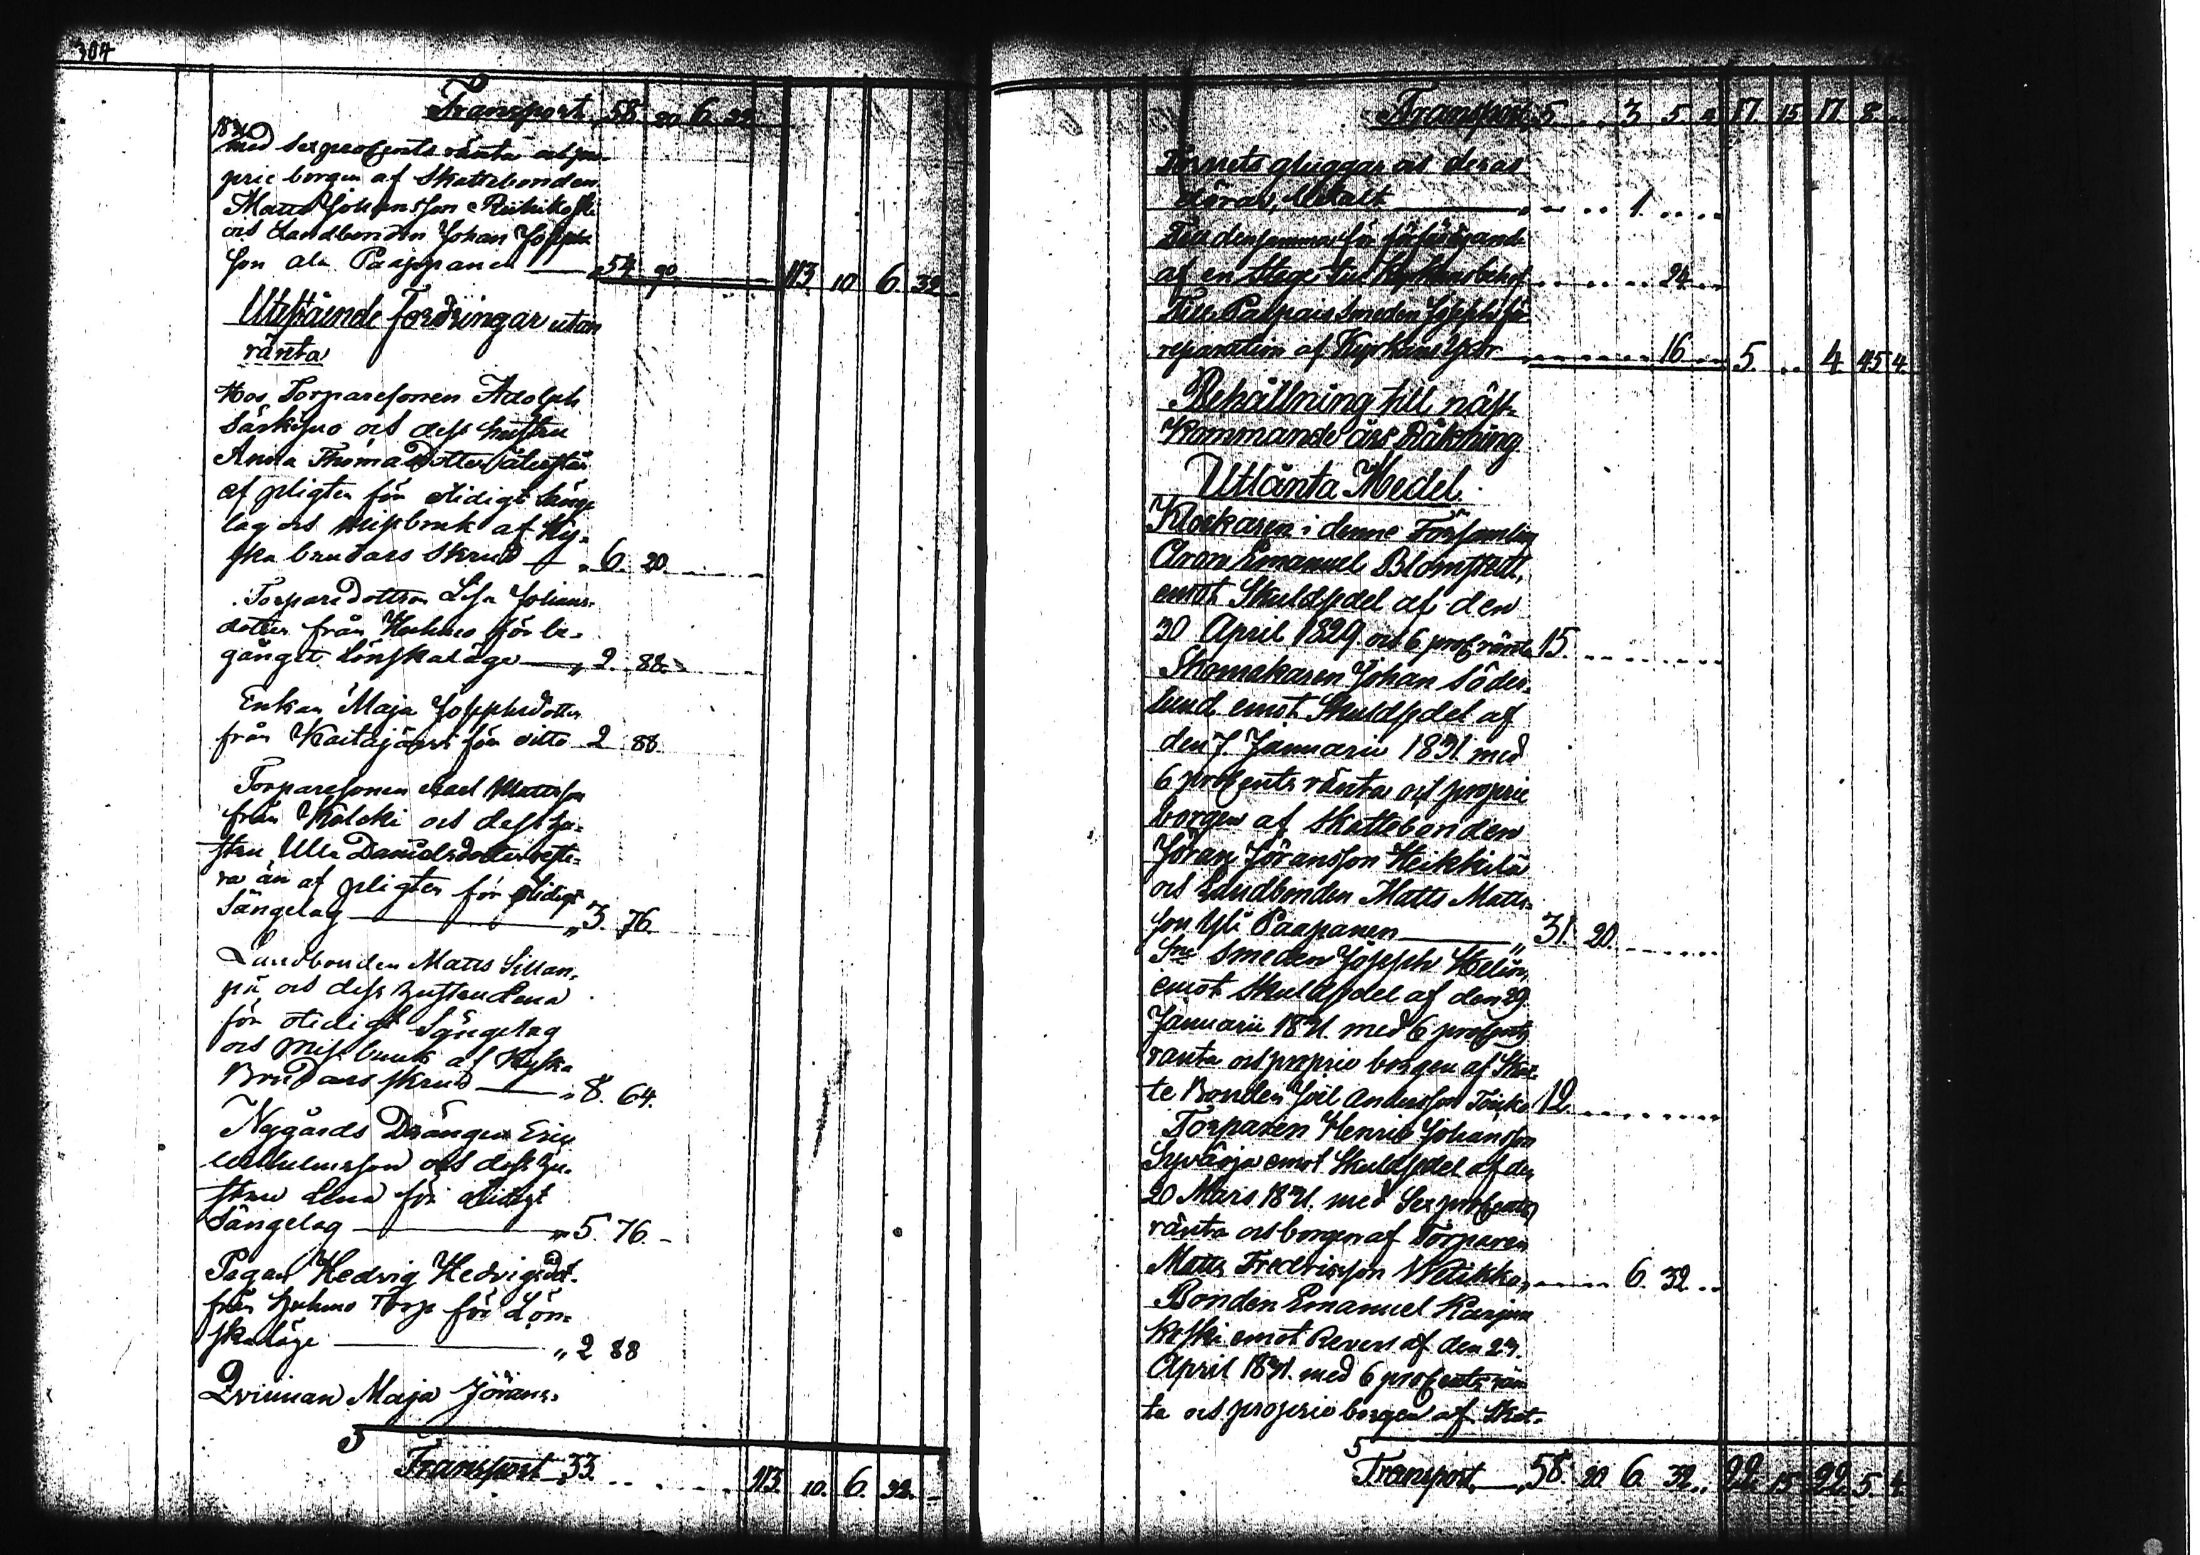 304
Transport 58. 20. 6. 32.
1831
med sex procents ränta och pro-
prie borgen af Skattebonden
Matts Johansson Riihikoski
och Landbonden Johan Josephs
son Ala Paappanen 54. 90. 113. 10. 6. 32.
Utestående Fordringar utan
ränta
Hos Torparesonen Adolph
och dess hustru
Anna Thomædotter återstår
af pligten för otidigt Sänge
lag och missbruk af Ky-
ska brudars Skrud 6. 20.
Torparedottren Lisa Johans-
dotter från Huhmo för be-
gånget Lönskaläge 2. 88.
Enkan Maja Josephsdotter
från Kaitajärvi för ditto 2 88.
Torparesonen Mattsson
från och dess hu-
stru Ulla Danielsdotter reste-
ra än af pligten för otidigt
Sängelag 3. 76.
Landbonden Matts Sillan-
pä och dess hustru Lena
för otidigt Sängelag
och missbruk af Kyska
Brudars skrud 8. 64.
Nygårds Drängen Eric
Wilhelmsson och dess hu-
stru Lena för otidigt
Sängelag 5. 76.
Pigan Hedvig Hedvigsdotr
från Huhmo Torp för Lön-
skaläge 2 88
Qvinnan Maja Jörans-
Transport 33. 113. 10. 6. 32.
Transport 5 3 5 17 15 17 8
Tornets gluggar och deras
dörar, betalt 1.
Till densamma för förfärdigande
af en Stege till Kyrkans behof 24
Till Paljais Smeden Joseph för
reparation af Kyrkans 16 5. 4 45 4.
Behållning till näst-
kommande års Räkning.
Utlånta Medel.
Klockaren i denne Församling
Aron Emanuel Blomstedt,
emot Skuldsedel af den
30 April 1829 och 6 proc ränta 15.
Skomakaren Johan Söder-
lund emot Skuldsedel af
den 7 Januarii 1831. med
6 procents ränta och proprie
borgen af Skattebonden
Jöran Jöransson Heikkilä
och Landbonden Matts Matts-
son Yli Paapanen 31. 20.
Sne Smeden Joseph Helin,
emot Skuldsedel af den 29.
Januarii 1831. med 6 procents
ränta och proprie borgen af Skat-
te Bonden Joël Andersson 12.
Torparen Henric Johansson
Syväoja emot Skuldsedel af den
20 Mars 1831. med Sex procents
ränta och borgen af Torparen
Matts Fredricsson 6. 32
Bonden Emanuel Karjan
koski emot Revers af den 23.
April 1831. med 6 procents rän
ta och proprie borgen af Skat-
Transport 58. 20. 6. 32. 22 15 22. 5. 4.